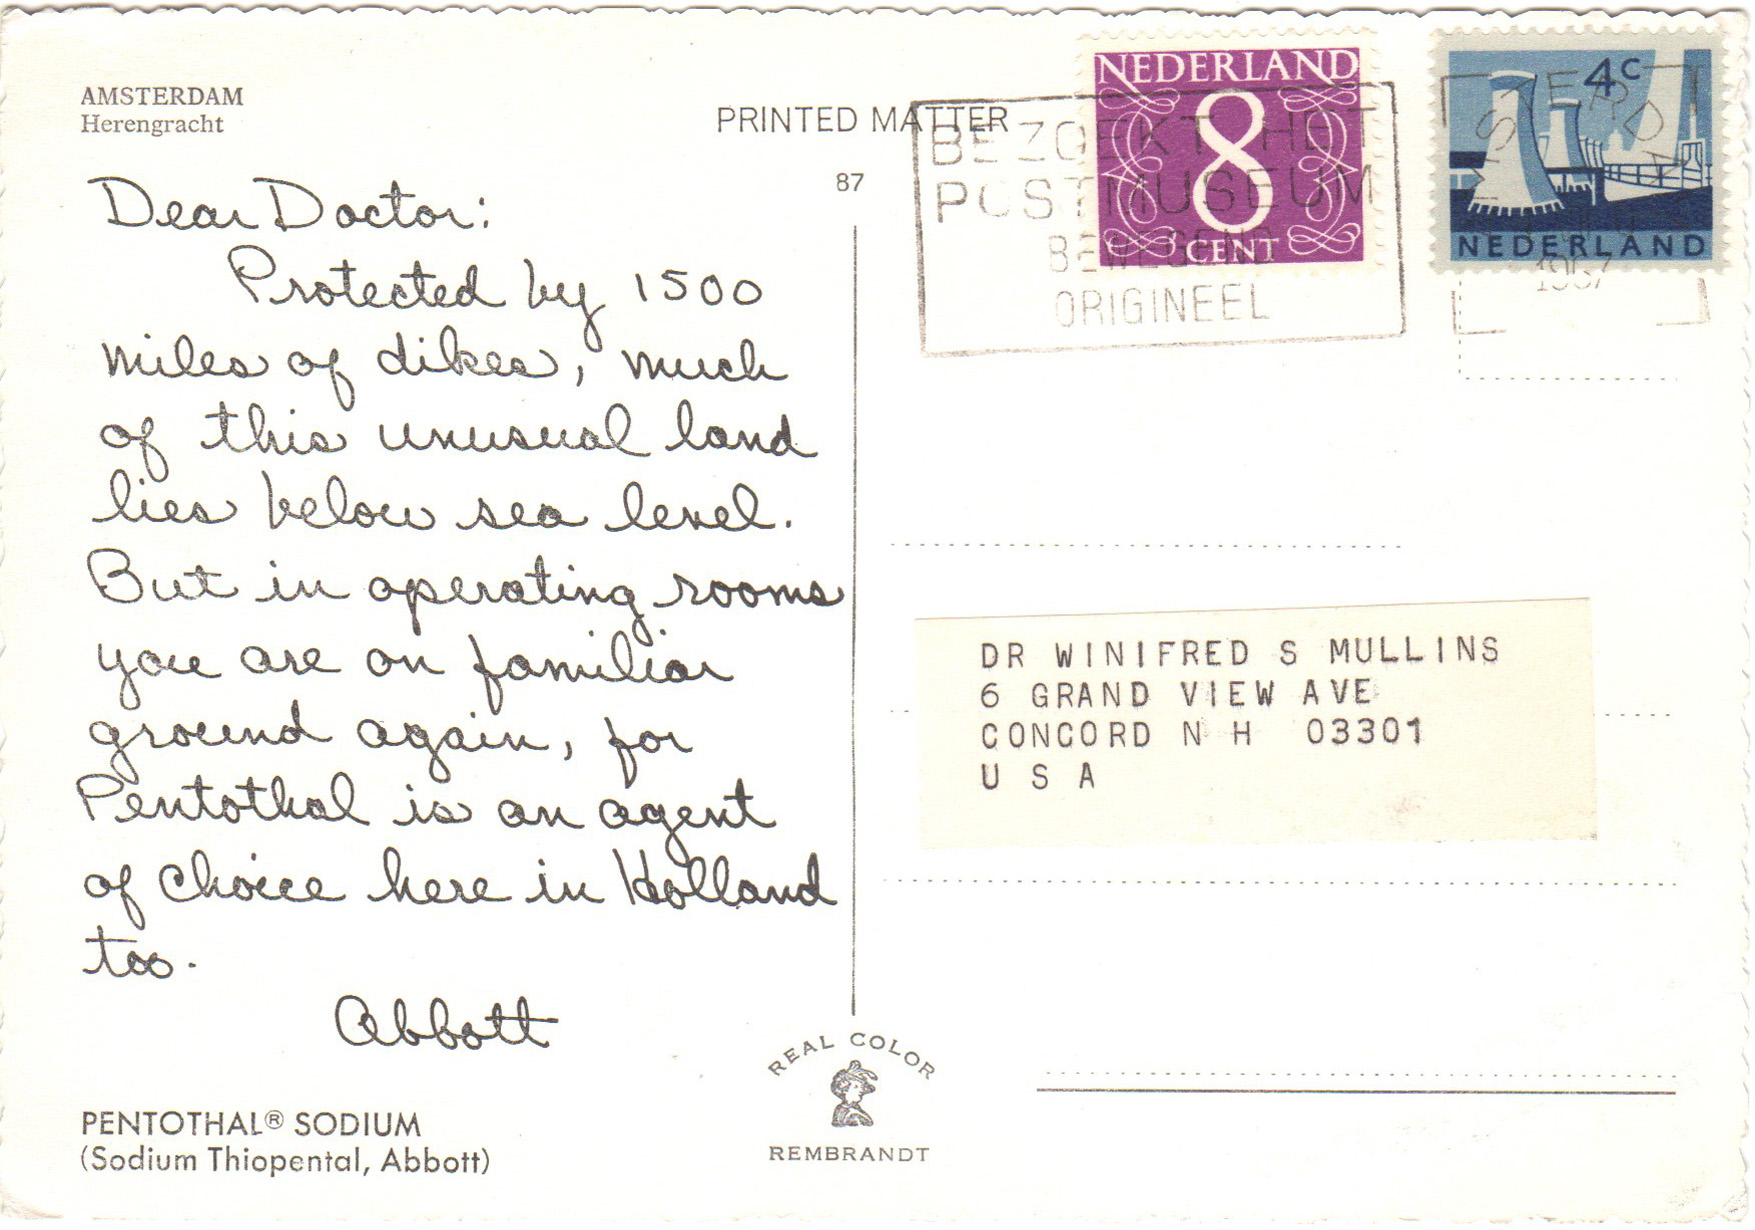 AMSTERDAM
Herengracht
PRINTED MATTER
87
Dear Doctor:
Protected by 1500
miles of dikes, much
of this unusual land
lies below sea level.
But in operating rooms
you are on familiar
ground again, for
Pentothal is an agent
of choice here in Holland
too.
Abbott
PENTOTHAL® SODIUM
(Sodium Thiopental, Abbott)
REAL COLOR
REMBRANDT
NEDERLAND
8
CENT
4c
NEDERLAND
BEZOEKT HET
POSTMUSEUM
BEWEGEND
ORIGINEEL
AMSTERDAM
1967
DR WINIFRED S MULLINS
6 GRAND VIEW AVE
CONCORD N H 03301
U S A